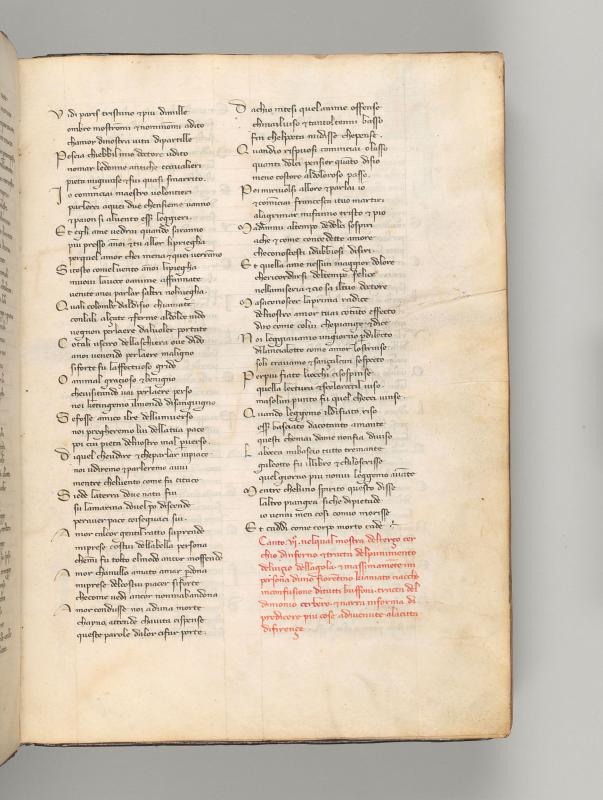 Vidi paris tristano & piu dimille
ombre mostromi & nominomi adito
chamor dinostra vita dipartille
Poscia chebbi il mio dottore udito
nomar ledonne antiche eccavalieri
pieta migiunse & fui quasi smarrito
Io cominciai maestro volontieri
parlerei aquei due chensieme vanno
& paion si alvento essr leggieri
Et egli ame vedrai quando saranno
piu presso anoi & tu allor lipriegha
perquel amor chei mena & quei verranno
Sitosto come lvento anoi lipiegha
muovi lavoce oanime affannate
venite anoi parlar saltri nolniegha
Quali colombe daldisio chiamate
conlali alçate & ferme aldolce nido
vegnon perlaere dalvoler portate
Cotali uscero dellaschiera ove dido
anoi venendo perlaere maligno
siforte fu laffectuoso grido
O animal gratioso & benigno
chevisitando vai perlaere perso
noi ketingemo ilmondo disanguigno
Sefosse amico ilre delluniverso
noi pregheremo lui dellatua pace
poi cai pieta delnostro mal pverso
Diquel cheudire & cheparlar vipiace
noi udiremo & parleremo avvi
mentre chelvento come fa citace
Siede laterra dove nata fui
su lamarina dovel po discende
peraver pace coseguaci sui
Amor chalcor gentil ratto saprende
miprese costui dellabella persona
chemi fu tolto elmodo ancor moffende
Amor chanullo amato amar pdona
miprese delcostui piacer siforte
checome vedi ancor nonmabandona
Amor condusse noi aduna morte
chayna attende chavita cispense
queste parole dalor cifur porte
Dachio intesi quelanime offense
chinailviso & tantol tenni basso
fin chelpoeta midisse chepense
Quandio rispuosi cominciai olasso
quanti dolci pensier quato disio
meno costoro aldoloroso passo
Poi mirivolsi alloro & parlai io
& cominciai francesca ituoi martiri
alagrimar mifanno tristo & pio
Madimmi altempo dedolci sospiri
ache & come concedette amore
checonoscesti idubbiosi disiri
Et quella ame nessun maggior dolore
chericordarsi deltempo felice
nellamiseria & cio sa iltuo dottore
Masaconoscer laprima radice
delnostro amor tuai cotato effecto
diro come colui chepiange & dice
Noi leggiavamo ungiorno pdilecto
dilancialotto come amor lostrinse
soli eravamo & sançalcun sospecto
Perpiu fiate liocchi cisospinse
quella lectura & scolorocil viso
masolun punto fu quel checci vinse
Quando leggemo ildisiato riso
essr basciato dacotanto amante
questi chemai dame nonfia diviso
Labocca mibascio tutto tremante
galeotto fu illibro & chiloscrisse
quel giorno piu nonvi leggemo avate
Mentre cheluno spirito questo disse
laltro piangea siche dipietade
io venni men cosi comio morisse
Et caddi come corpo morto cade
Canto .vj. nelqual mostra delterço cer
chio dinferno & tracta delpunimento
delviçio dellagola & massimamente in
persona duno fiorentino kiamato ciaccho
inconfusione ditutti buffoni tracta del
dimonio cerbero & narra informa di
predicere piu cose adivenute alacitta
difirençe